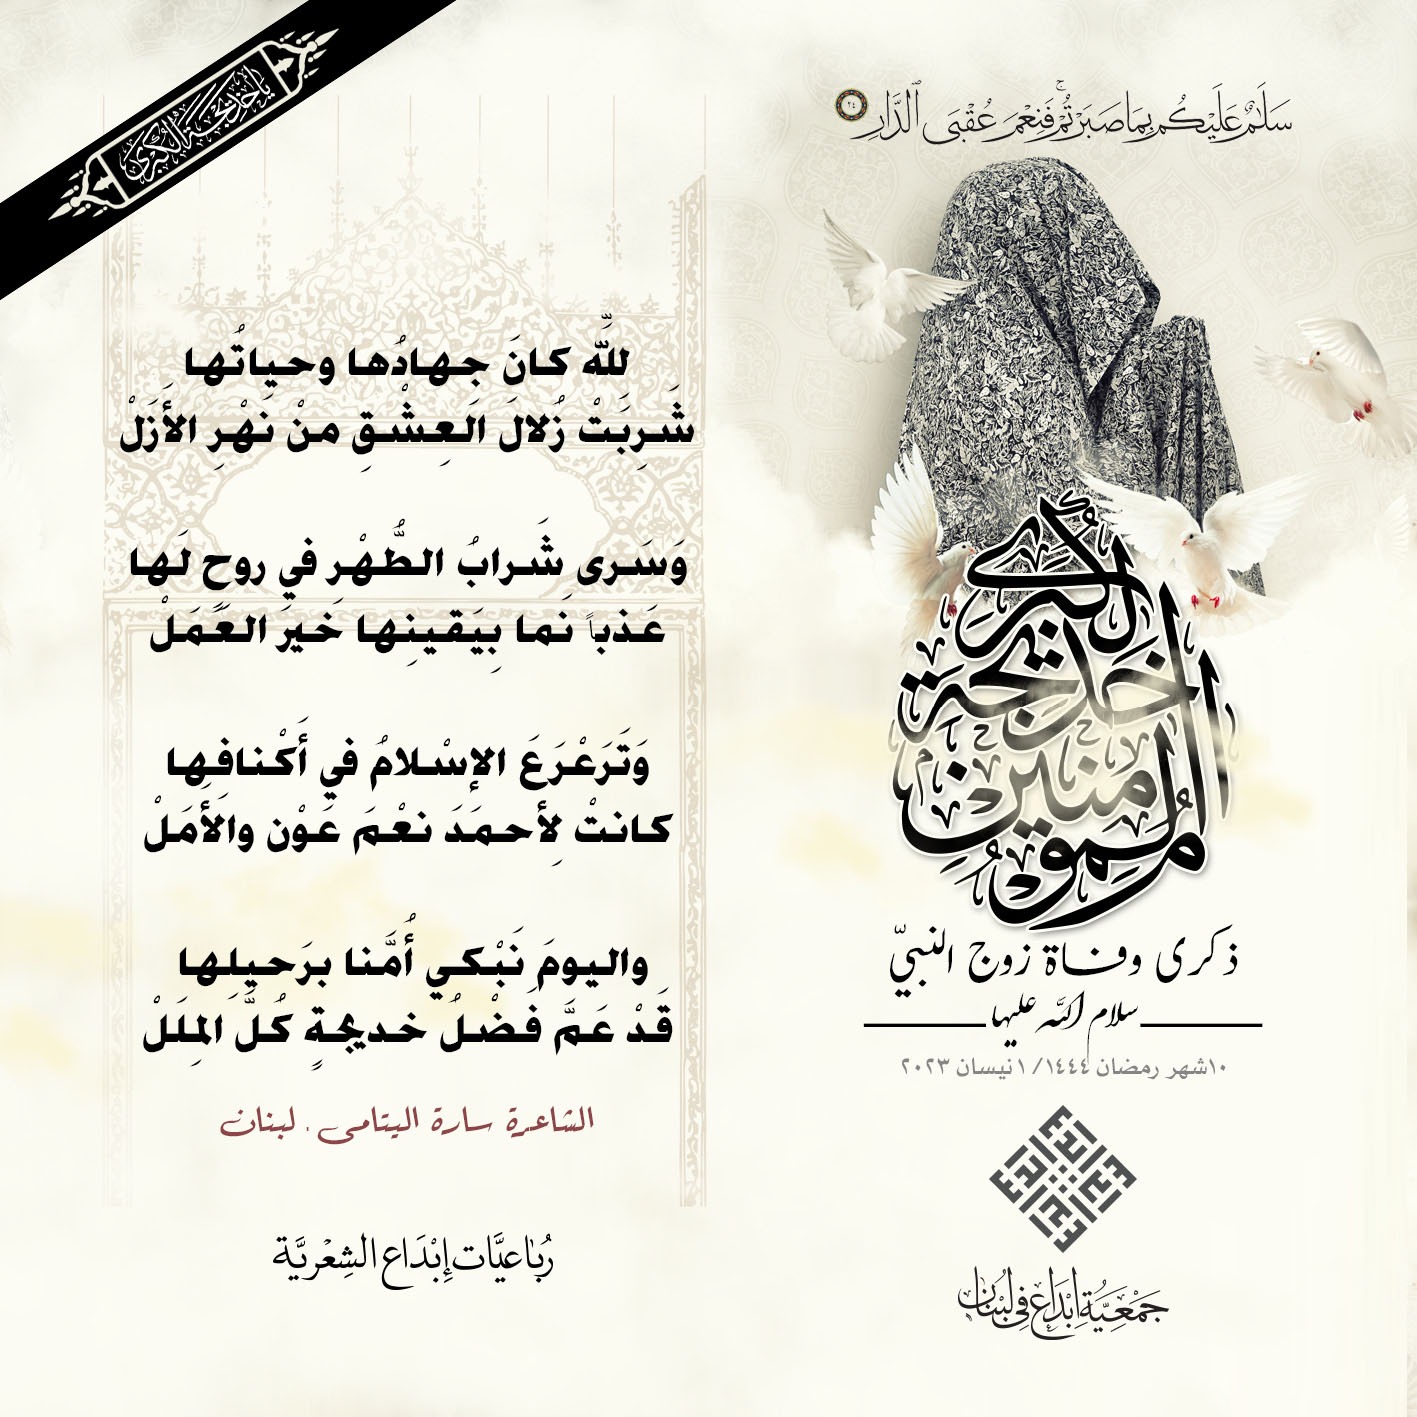 سَلَٰمٌ عَلَيْكُم بِمَا صَبَرْتُمْ ۚ فَنِعْمَ عُقْبَى ٱلدَّارِ ٢٤
يا خديجة الكبرى
للَّه كانَ جهادُها وحياتُها
شَربَتْ زُلالَ العِشْقِ منْ نَهْرِ الأَزَلْ
وَسَرى شَرابُ الطُّهْر في روحٍ لَها
عَذباً نَما بِيَقينِها خَيرَ العَمَلْ
وَتَرَعْرَعَ الإسْلامُ في أَكْنافِها
كانتْ لِأحمَدَ نعْمَ عَوْن والأَمَلْ
واليومَ نَبْكي أُمَّنا برَحيلِها
قَدْ عَمَّ فضْلُ خديجةٍ كُلَّ المِلَلْ
الشاعرة سارة اليتامى . لبنان
رُباعيَّات إِبْدَاع الشِعْريَّة
أم المؤمنين خديجة الكبرى
ذكرى وفاة زوج النبيّ
سلام الله عليها
١٠شهر رمضان ١٤٤٤/ ١نيسان ٢٠٢٣
جَمْعِيَّةُ إِبْدَاعٍ فِي لُبْنَان